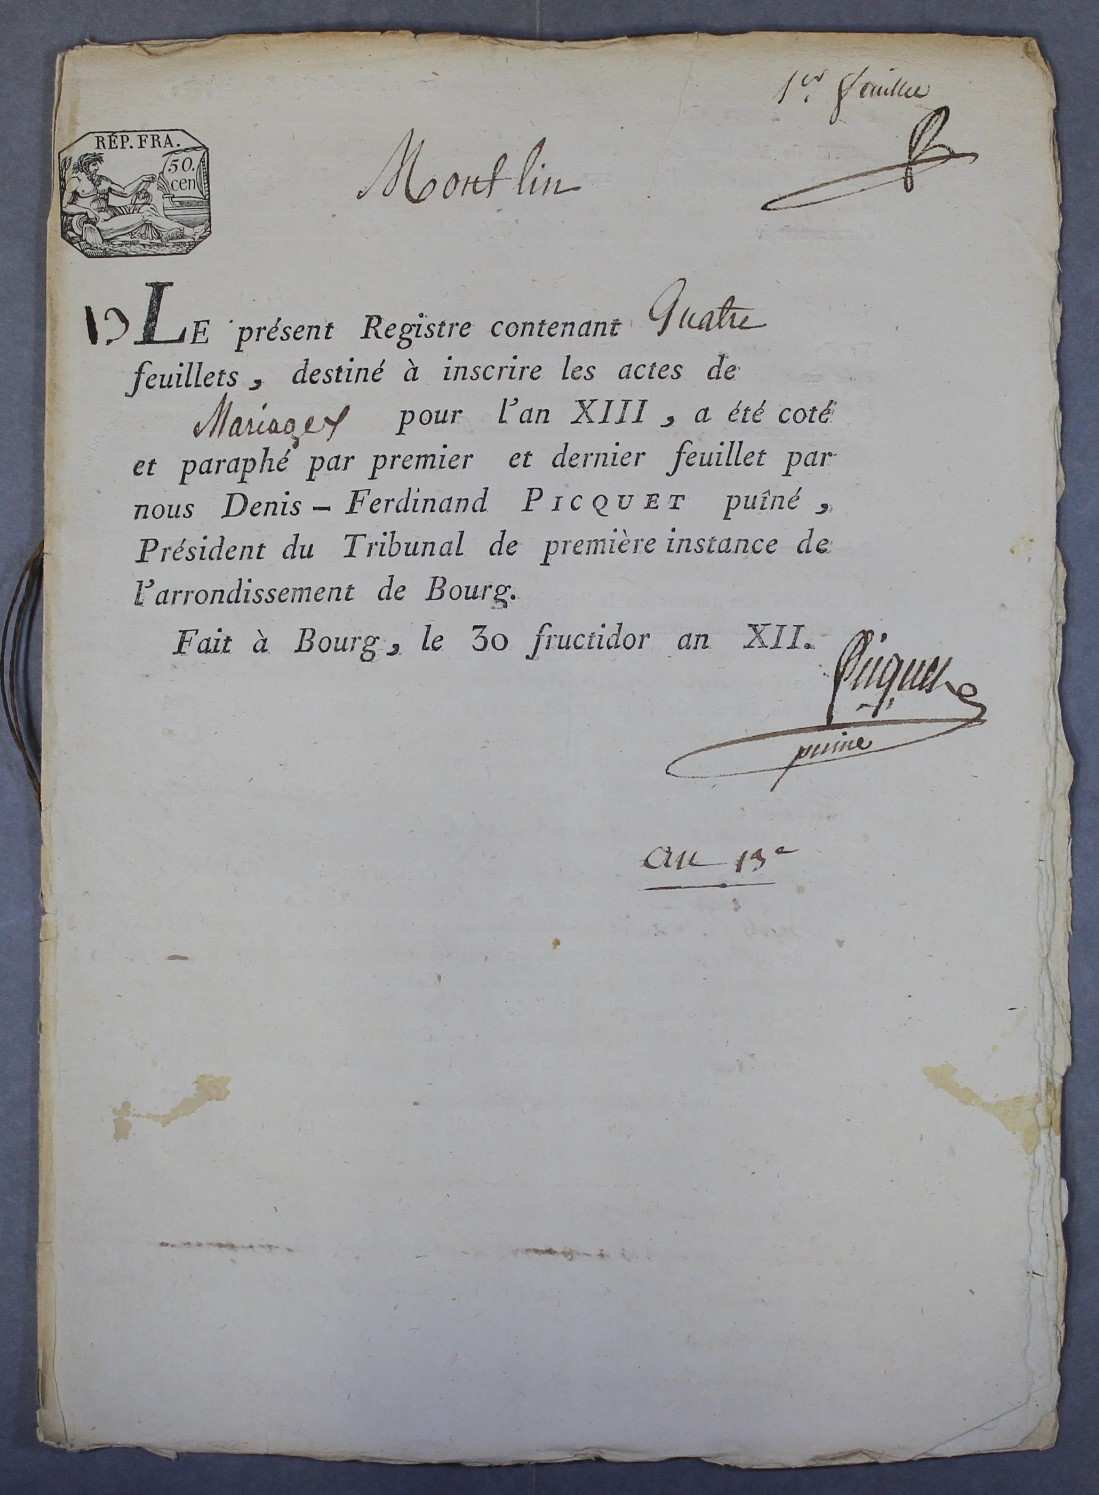 1er feuillet
RÉP. FRA.
50.
cen
Montlin
13
LE présent Registre contenant Quatre
feuillets, destiné à inscrire les actes de
Mariages pour l'an XIII, a été coté
et paraphé par premier et dernier feuillet par
nous Denis - Ferdinand PICQUET puîné,
Président du Tribunal de première instance de
l'arrondissement de Bourg.
Fait à Bourg, le 30 fructidor an XII.
Picquet
puiné
an 13e